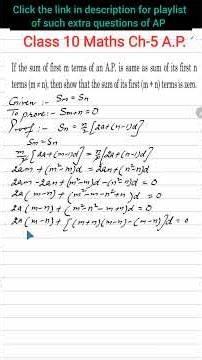 Click the link in description for playlist
of such extra questions of AP
Class 10 Maths Ch-5 A.P.
If the sum of first m terms of an A.P. is same as sum of its first n
terms (m ≠ n), then show that the sum of its first (m + n) terms is zero.
Given :- Sm = Sn
To prove:- Sm+n = 0
Proof :- Sn = n/2 [2a+(n-1)d]
Sm = Sn
m/2 [2a+(m-1)d] = n/2 [2a+(n-1)d]
2am + (m²-m)d = 2an + (n²-n)d
2am - 2an + (m²-m)d - (n²-n)d = 0
2a (m-n) + (m²-m-n²+n)d = 0
2a (m-n) + (m²-n²-m+n)d = 0
2a (m-n) + [(m+n)(m-n) - (m-n)]d = 0